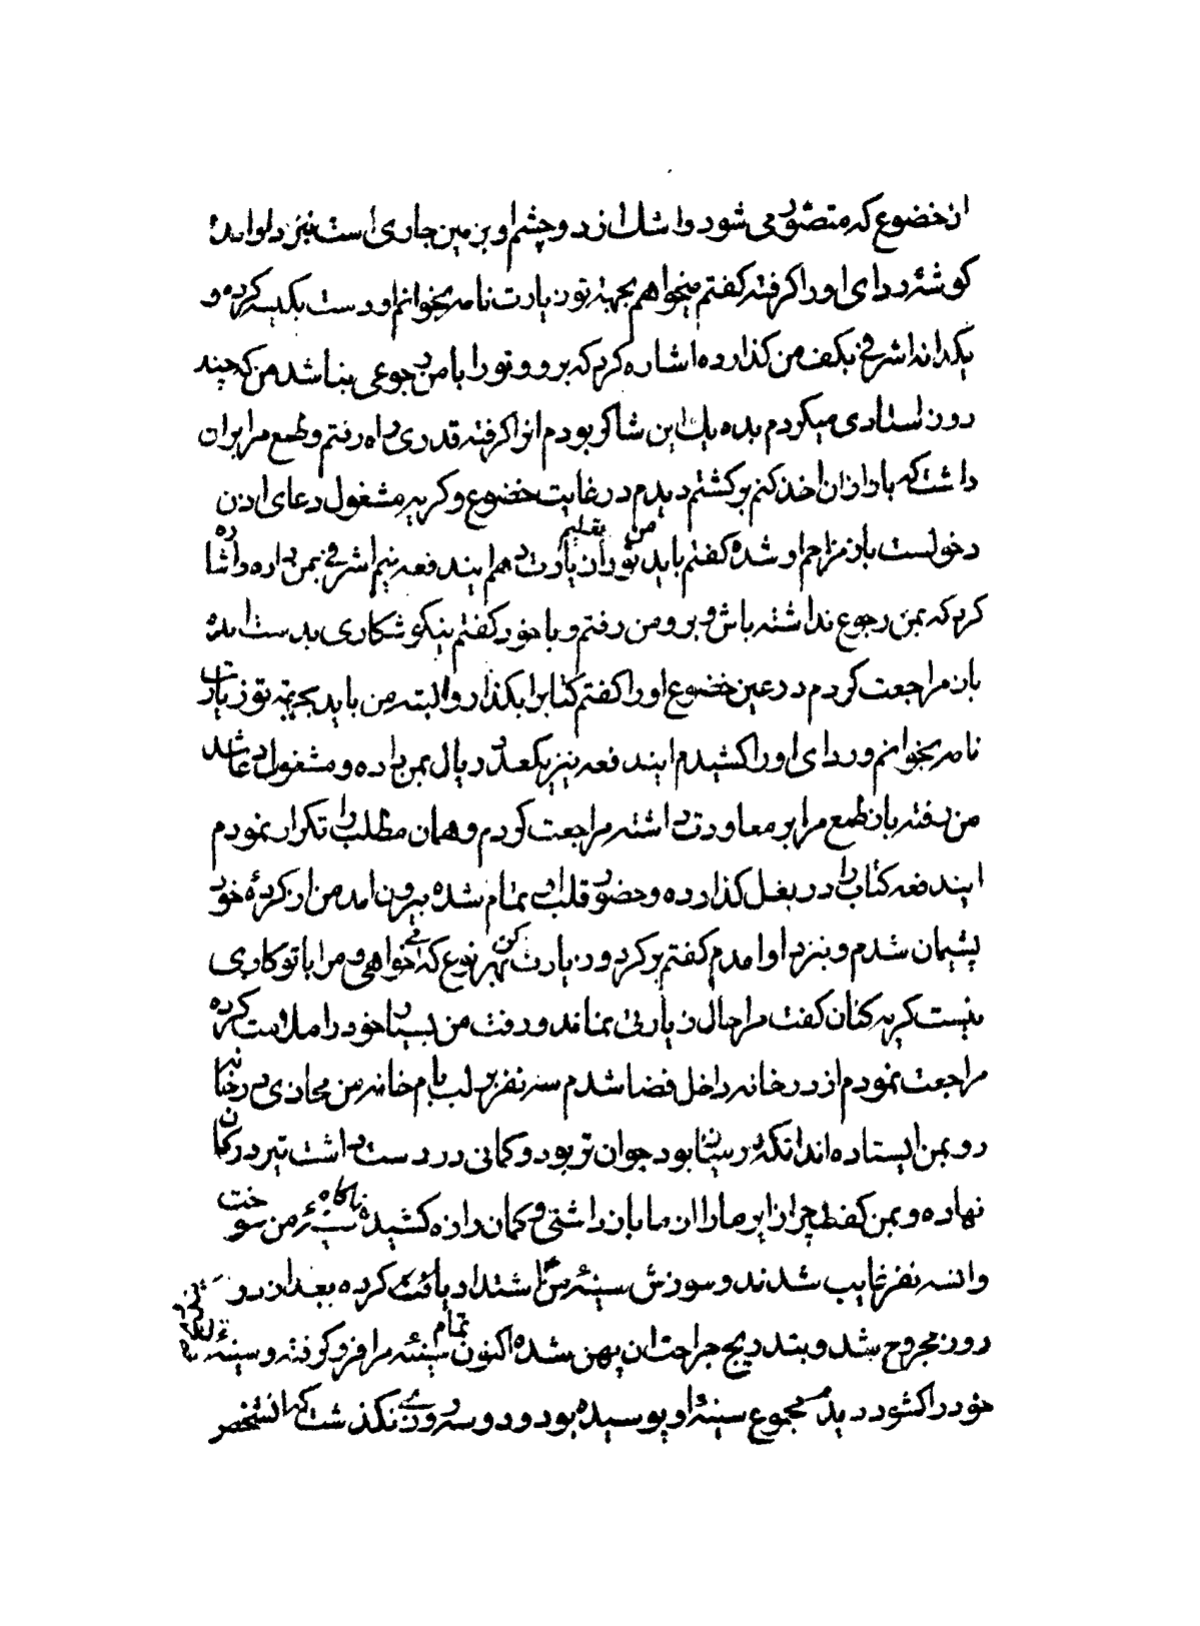 از خضوع که متصور می شود و اشک از دو چشم او بر زمین جاری است بنزد او امده
کوشهٔ ردای او را کرفته کفتم میخواهم بجهة تو زیارت نامه بخوانم او دست بکیسه کرده و
یکدانه اشرفی بکف من کذارده اشاره کرد که برو و تو را با من رجوعی نباشد من که چند
روز استادی میکردم بده یک این شاکر بودم انرا کرفته قدری راه رفتم و طمع مرا بران
داشت که باز ازان اخذ کنم برکشتم دیدم در غایت خضوع و کریه مشغول دعای اذن
دخولست باز مزاحم او شده کفتم باید من تو را تعلیم زیارت دهم ایندفعه نیم اشرفی بمن داده و اشاره
کرد که بمن رجوع نداشته باش و برو من رفتم و با خود کفتم نیکو شکاری بدست امده
باز مراجعت کردم در عین خضوع او را کفتم کتابرا بکذار و البته من باید بجهة تو زیارت
نامه بخوانم و ردای او را کشیدم ایندفعه نیز یکعدد ریال بمن داده و مشغول دعا شد
من رفته باز طمع مرا بر معاودت داشته مراجعت کردم و همان مطلب را تکرار نمودم
ایندفعه کتاب را در بغل کذارده و حضور قلب او تمام شده بیرون امد من از کردهٔ خود
پشیمان شدم و بنزد او امدم کفتم برکرد و زیارت کن بهر نوع که می خواهی و مرا با تو کاری
نیست کریه کنان کفت مرا حال زیارتی نماند و رفت من بسیار خود را ملامت کرده
مراجعت نمودم از در خانه داخل فضا شدم سه نفر بر لب بام خانه من محاذی در خانه
رو بمن ایستاده اند انکه در میان بود جوان تر بود و کمانی در دست داشت تیر در کمان
نهاده و بمن کفت چرا زایر ما را از ما باز داشتی و کمان را زه کشیده ناکاه سینهٔ من سوخت
و انسه نفر غایب شدند و سوزش سینهٔ من اشتداد یافت کرده بعد از دو
روز مجروح شد و بتدریج جراحت ان پهن شده اکنون تمام سینهٔ مرا فرو کرفته و سینهٔ
خود را کشود دیدم مجموع سینهٔ او پوسیده بود و دو سه روزی نکذشت که انشخص